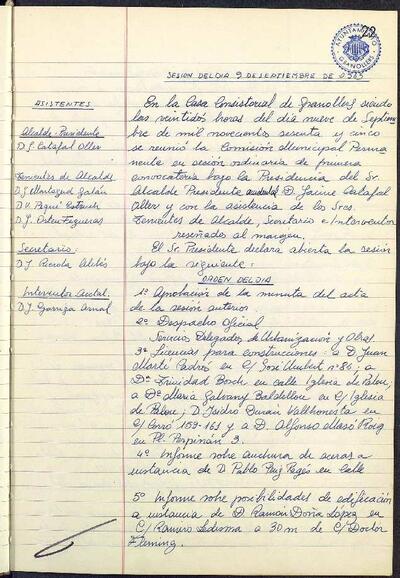 AYUNTAMIENTO
GRANOLLERS
SESION DEL DIA 9 DE SEPTIEMBRE DE
ASISTENTES
Alcalde-Presidente
Tenientes de Alcalde
Secretario:
Interventor Acctal:
En la Casa Consistorial de Granollers siendo
las veintidos horas del dia nueve de Septiem
bre de mil novecientos setenta y cinco
se reunió la Comisión Municipal Perma
nente en sesión ordinaria de primera
convocatoria bajo la Presidencia del Sr.
Alcalde Presidente D. Jaime
Oller y con la asistencia de los Sres.
Tenientes de Alcalde, Secretario e Interventor
reseñados al margen.
El Sr. Presidente declara abierta la sesión
bajo la siguiente:
ORDEN DEL DIA
1º Aprobación de la minuta del acta
de la sesión anterior
2º Despacho Oficial
Servicio Delegados de Urbanización y Obras
3º Licencias para construcciones: a D. Juan
Martí Padrós en C/ José Umbert nº 86; a
Dª Trinidad Bosch en calle Iglesia de Palou,
a Dª Maria Galvany Baldellou en C/ Iglesia
de Palou; D. Isidro Durán Vallhonesta en
C/ Corró 159-161 y a D. Alfonso Masó Roig
en Pl. Perpiñán 3.
4º Informe sobre anchura de aceras a
instancia de D. Pablo Puig Pagés en Calle
5º Informe sobre posibilidades de edificación
a instancia de D. Ramón Doria López en
C/ Ramiro Ledesma a 30 m de C/ Doctor
Fleming.